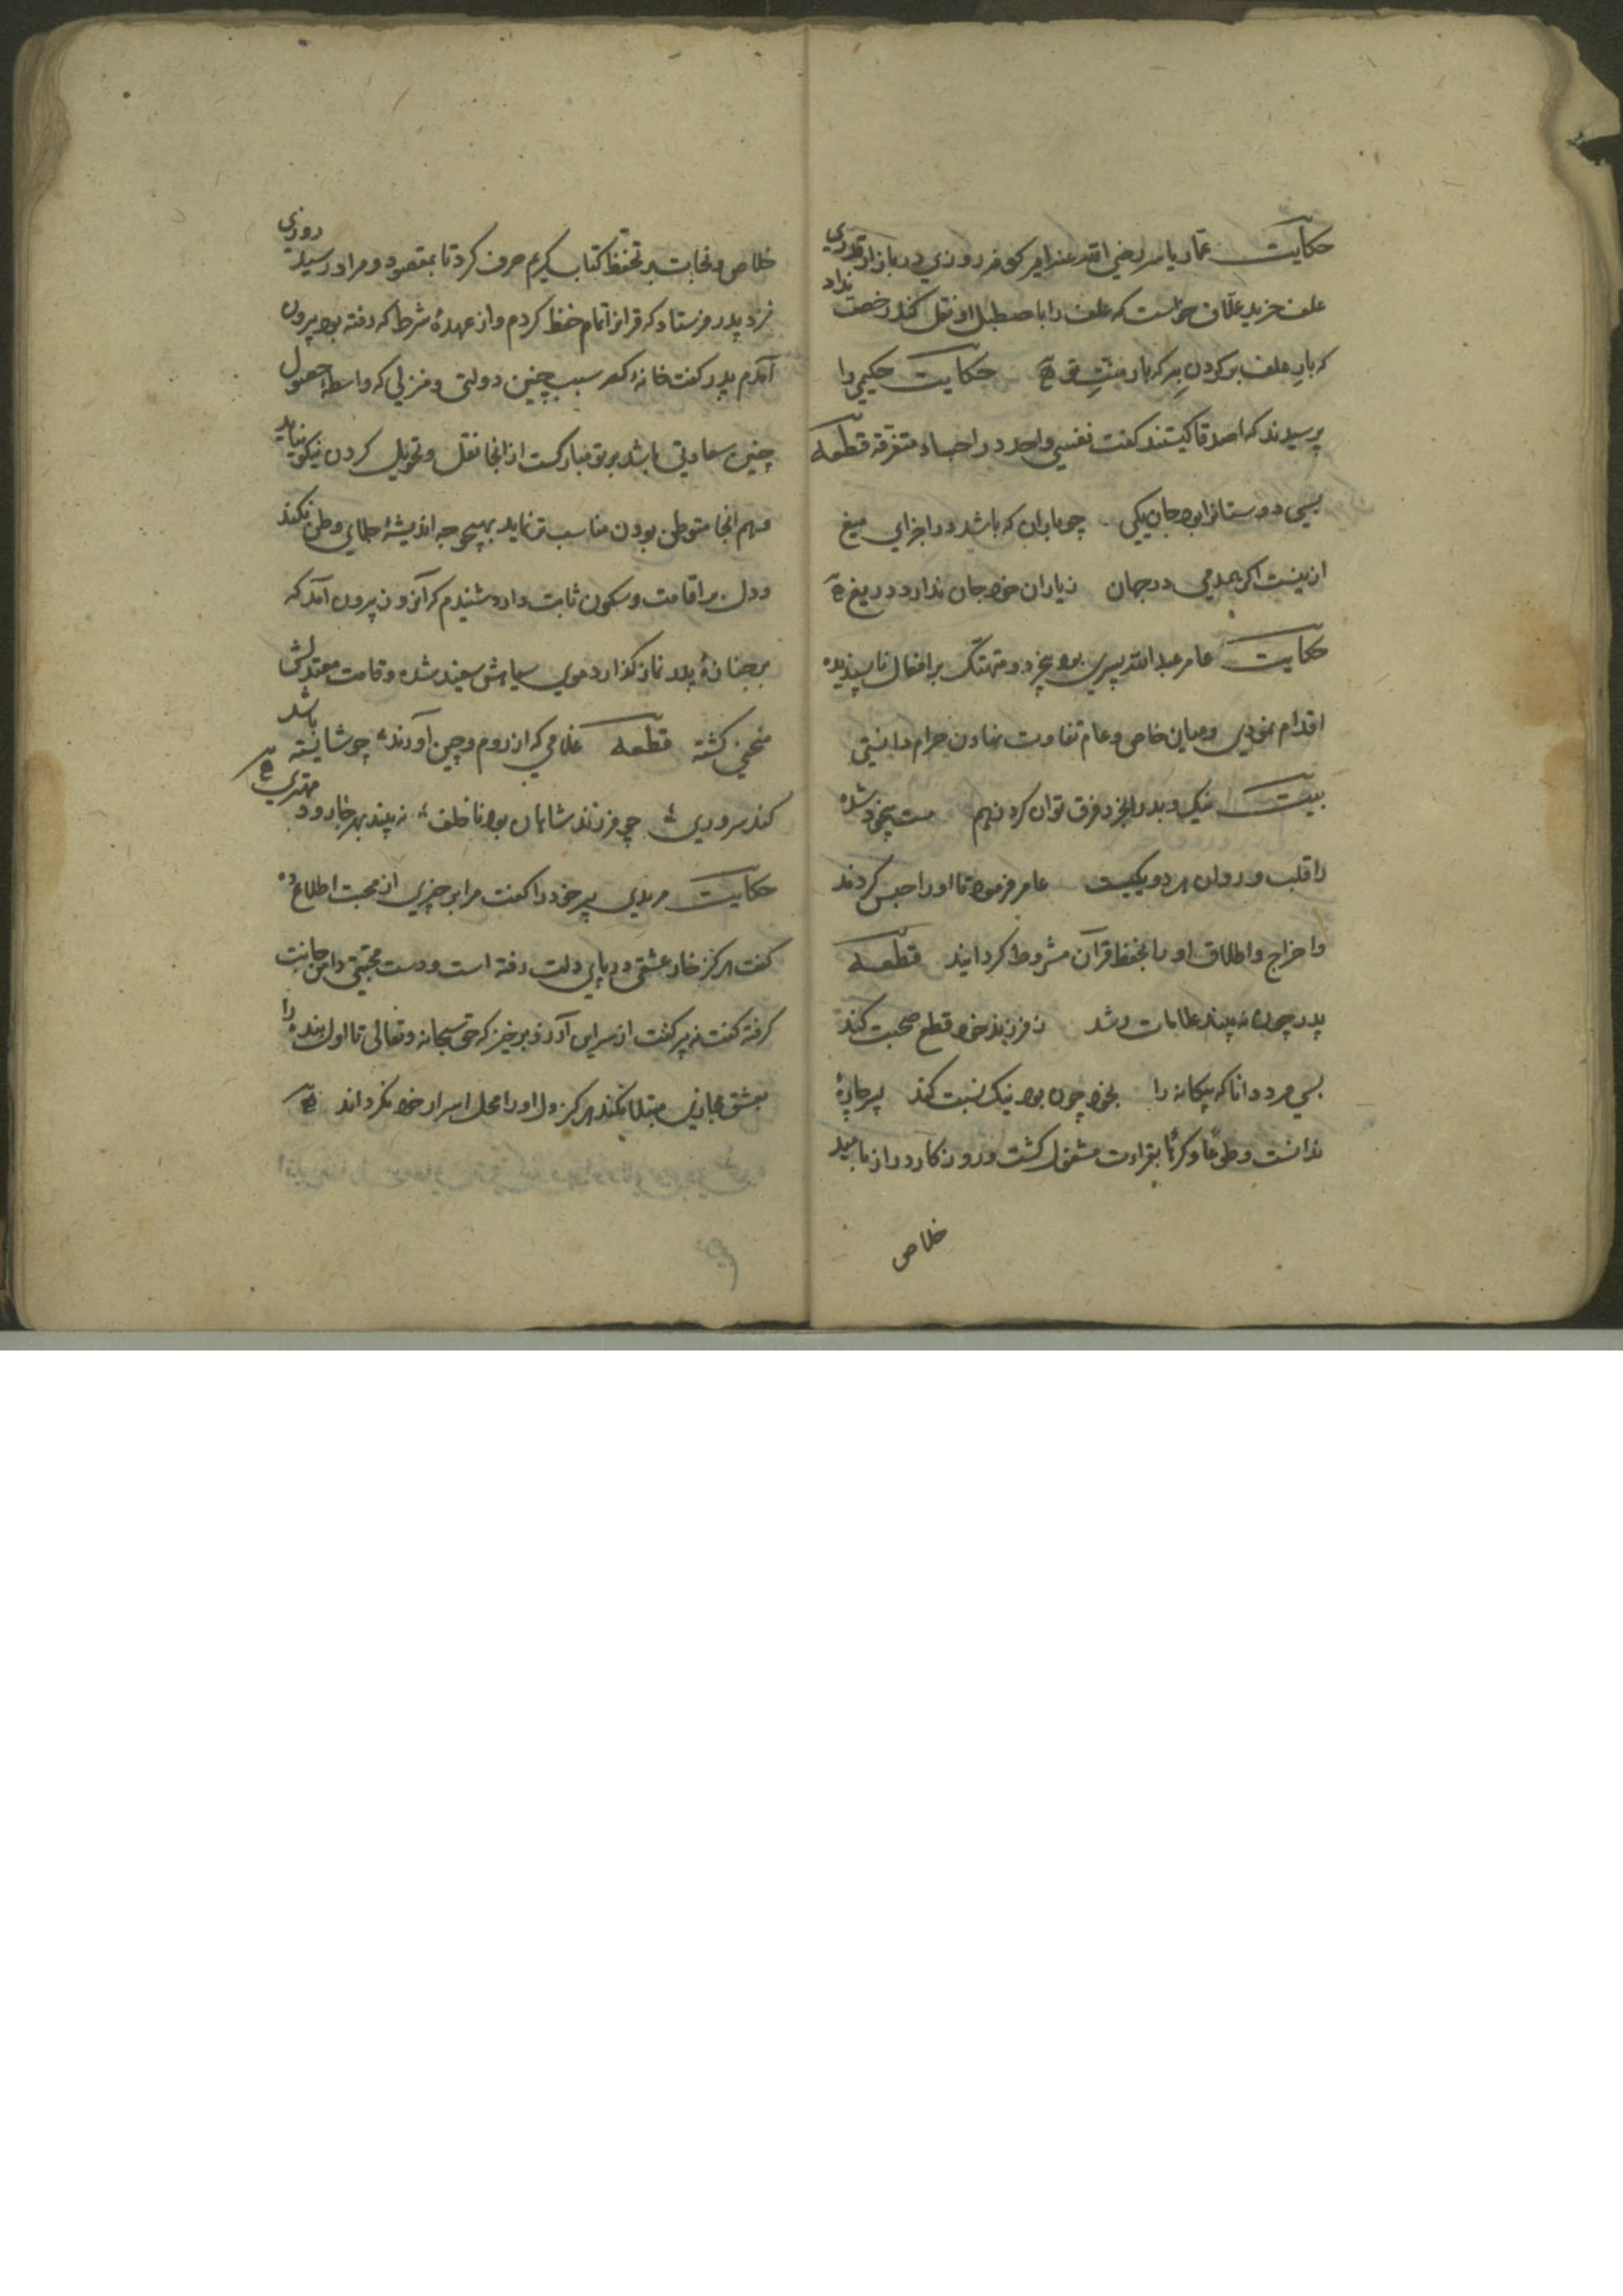 حکایت عمار یاسر رضی الله عنه امیر کوفه روزی در بازار قدری
علف خرید علاف خواست که علف را باصطبل او نقل کند رخصت نداد
که بار علف بر کردن به که بار منت تو حکایت حکیمی را
پرسیدند که اصدقا کیستند کفت نفسی واحد در اجساد متفرقه قطعه
بسی دوستانرا بود جان یکی چو باران که باشد در اجزای میغ
ازینست اکر همدمی در جهان ز یاران خود جان ندارد دریغ
حکایت عامر عبدالله پسری بود بیخرد و متهتک بر افعال ناپسندیده
اقدام نمودی و میان خاص و عام تفاوت نهادن حرام دانستی
بیت نیک و بد را بخرد فرق توان کرد ز هم مست بیخود شده
را قلب و روان هر دو یکیست عامر فرمود تا او را حبس کردند
و اخراج و اطلاق او را بحفظ قرآن مشروط کردانید قطعه
پدر چون نه بیند علامات رشد ز فرزند خود قطع صحبت کند
بسی مرد دانا که بیکانه را بخود چون بود نیک نسبت کند پسر چارهٔ
ندانست و طوعا و کرها بقراءت مشغول کشت و روزکار دراز بامید
خلاص
خلاص و نجات بر تحفظ کتاب کریم صرف کرد تا بمقصود و مراد رسید روزی
نزد پدر فرستاد که قرانرا تمام حفظ کردم و از عهدهٔ شرط که رفته بود بیرون
آمدم پدر کفت خانهٔ که سبب چنین دولتی و منزلی که واسطهٔ حصول
چنین سعادتی باشد بر تو مبارکست از انجا نقل و تحویل کردن نیکو نیاید
هم انجا متوطن بودن مناسب تر نماید بهیچ وجه اندیشهٔ جلای وطن نکند
و دل بر اقامت و سکون ثابت دارد شنیدم که آنروز بیرون آمد که
بر جنازهٔ پدر نماز کذارد موی سیاهش سفید شده و قامت معتدلش
منحنی کشته قطعه غلامی که از روم و چین آورند چو شایسته باشد
کند سروری چو فرزند شاهان بود ناخلف نه بیند بهر جا رود مهتری
حکایت مریدی پیر خود را کفت مرا بر چیزی از محبت اطلاع ده
کفت هرکز خار عشقی در پای دلت رفته است و دست محبتی دامن جانت
کرفته کفت نه پیر کفت از سر این آرزو برخیز که حق سبحانه و تعالی تا اول بنده را
بعشق مجازی مبتلا نکند هرکز دل او را محل اسرار خود نکرداند